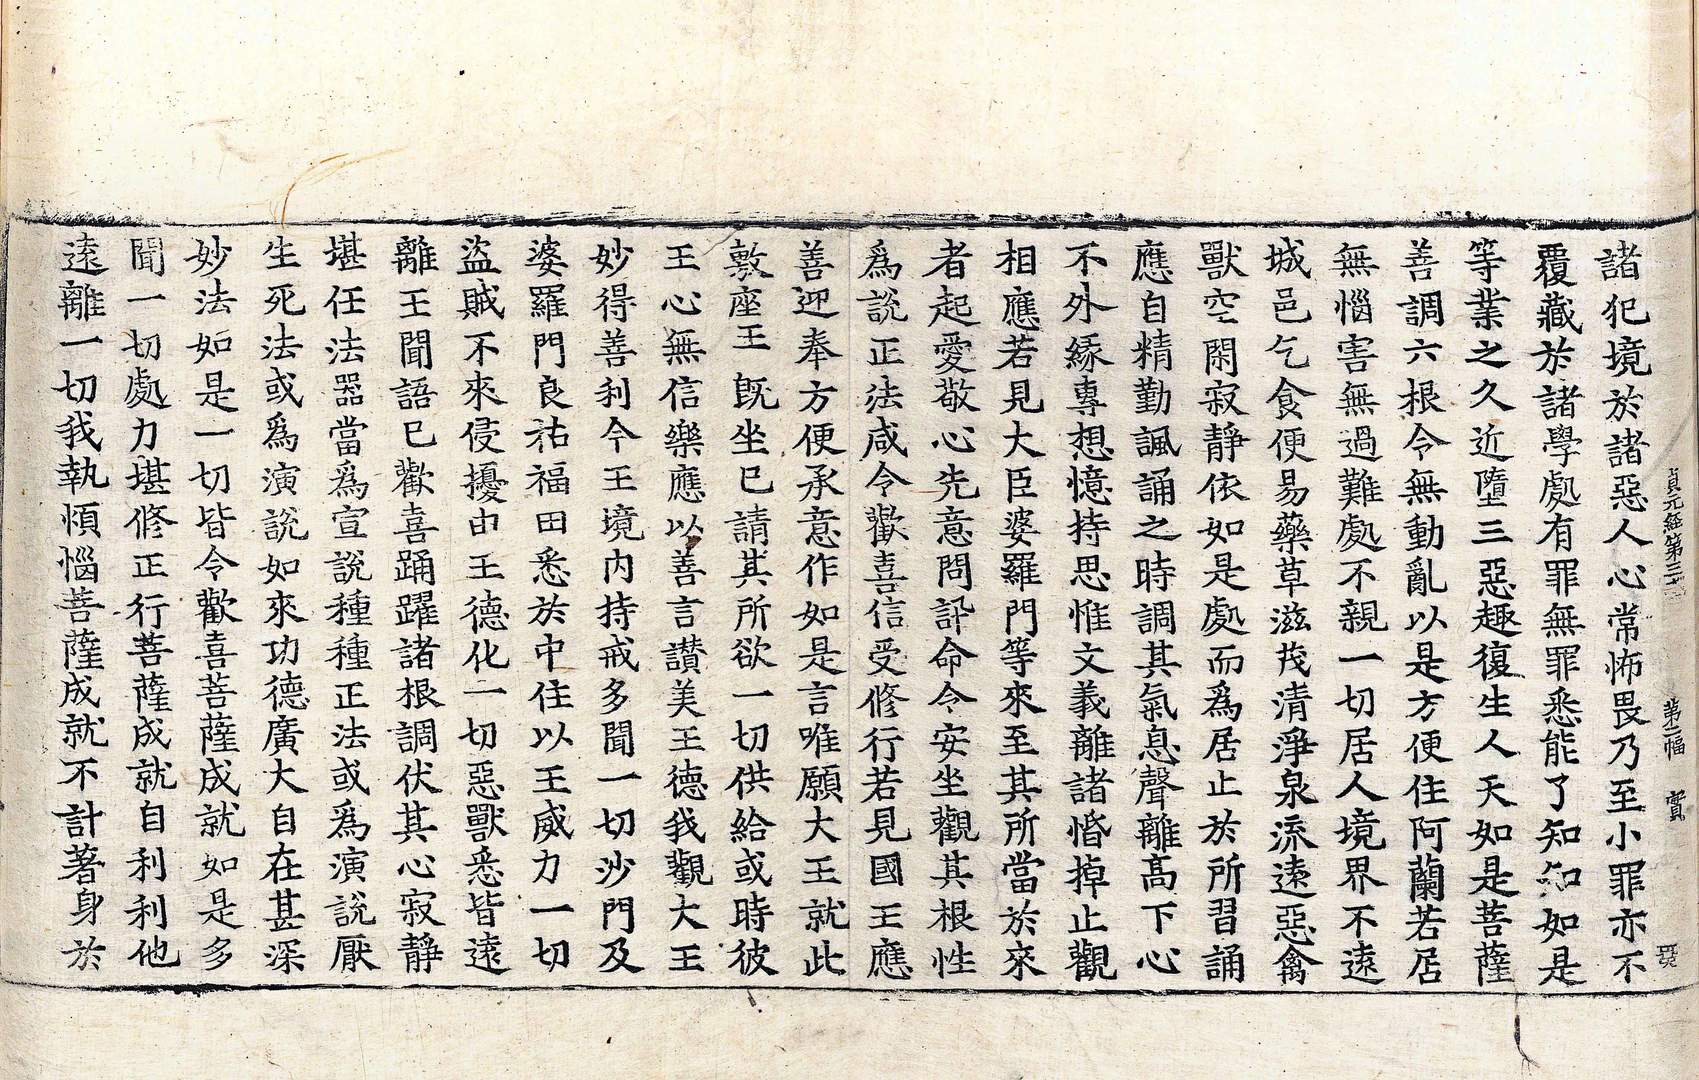 貞元経第三 第二幅 賓
諸犯境於諸惡人心常怖畏乃至小罪亦不
覆藏於諸學處有罪無罪悉能了知知如是
等業之久近墮三惡趣復生人天如是菩薩
善調六根令無動亂以是方便住阿蘭若居
無惱害無過難處不親一切居人境界不遠
城邑乞食便易藥草滋茂清淨泉流遠惡禽
獸空閑寂靜依如是處而爲居止於所習誦
應自精勤諷誦之時調其氣息聲離高下心
不外緣專想憶持思惟文義離諸惛掉止觀
相應若見大臣婆羅門等來至其所當於來
者起愛敬心先意問訊命令安坐觀其根性
爲說正法咸令歡喜信受修行若見國王應
善迎奉方便承意作如是言唯願大王就此
敷座王既坐已請其所欲一切供給或時彼
王心無信樂應以善言讃美王德我觀大王
妙得善利令王境内持戒多聞一切沙門及
婆羅門良祐福田悉於中住以王威力一切
盜賊不來侵擾由王德化一切惡獸悉皆遠
離王聞語已歡喜踊躍諸根調伏其心寂靜
堪任法器當爲宣說種種正法或爲演說厭
生死法或爲演說如來功德廣大自在甚深
妙法如是一切皆令歡喜菩薩成就如是多
聞一切處力堪修正行菩薩成就自利利他
遠離一切我執煩惱菩薩成就不計著身於